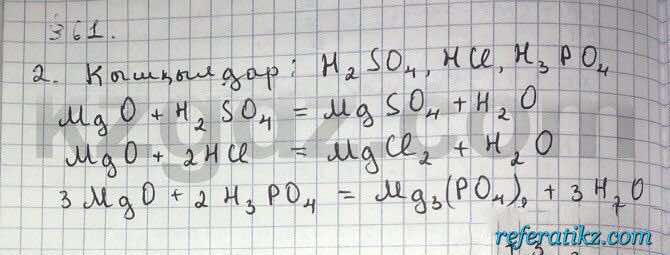 361.
2. Қышқылдар: H₂SO₄, HCl, H₃PO₄
MgO + H₂SO₄ = MgSO₄ + H₂O
MgO + 2HCl = MgCl₂ + H₂O
3MgO + 2H₃PO₄ = Mg₃(PO₄)₂ + 3H₂O
referatikz.com